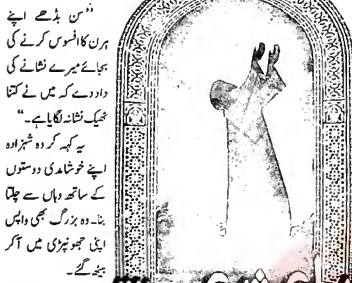 ”سن بڈھے اپنے
ہرن کا افسوس کرنے کی
بجائے میرے نشانے کی
داد دے کہ میں نے کتنا
ٹھیک نشانہ لگایا ہے۔“
یہ کہہ کر وہ شہزادہ
اپنے خوشامدی دوستوں
کے ساتھ وہاں سے چلتا
بنا۔ وہ بزرگ بھی واپس
اپنی جھونپڑی میں آکر
بیٹھ گئے۔